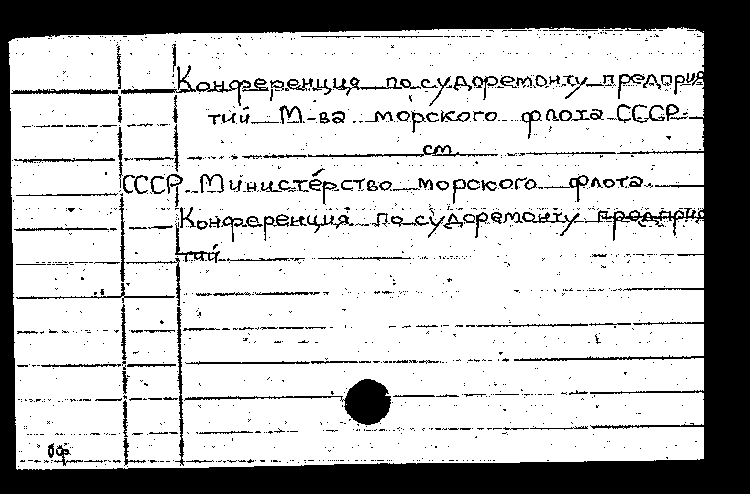 Конференция по судоремонту предприя
тий М-ва морского флота СССР.
см.
СССР. Министерство морского флота.
Конференция по судоремонту предприя
тий.